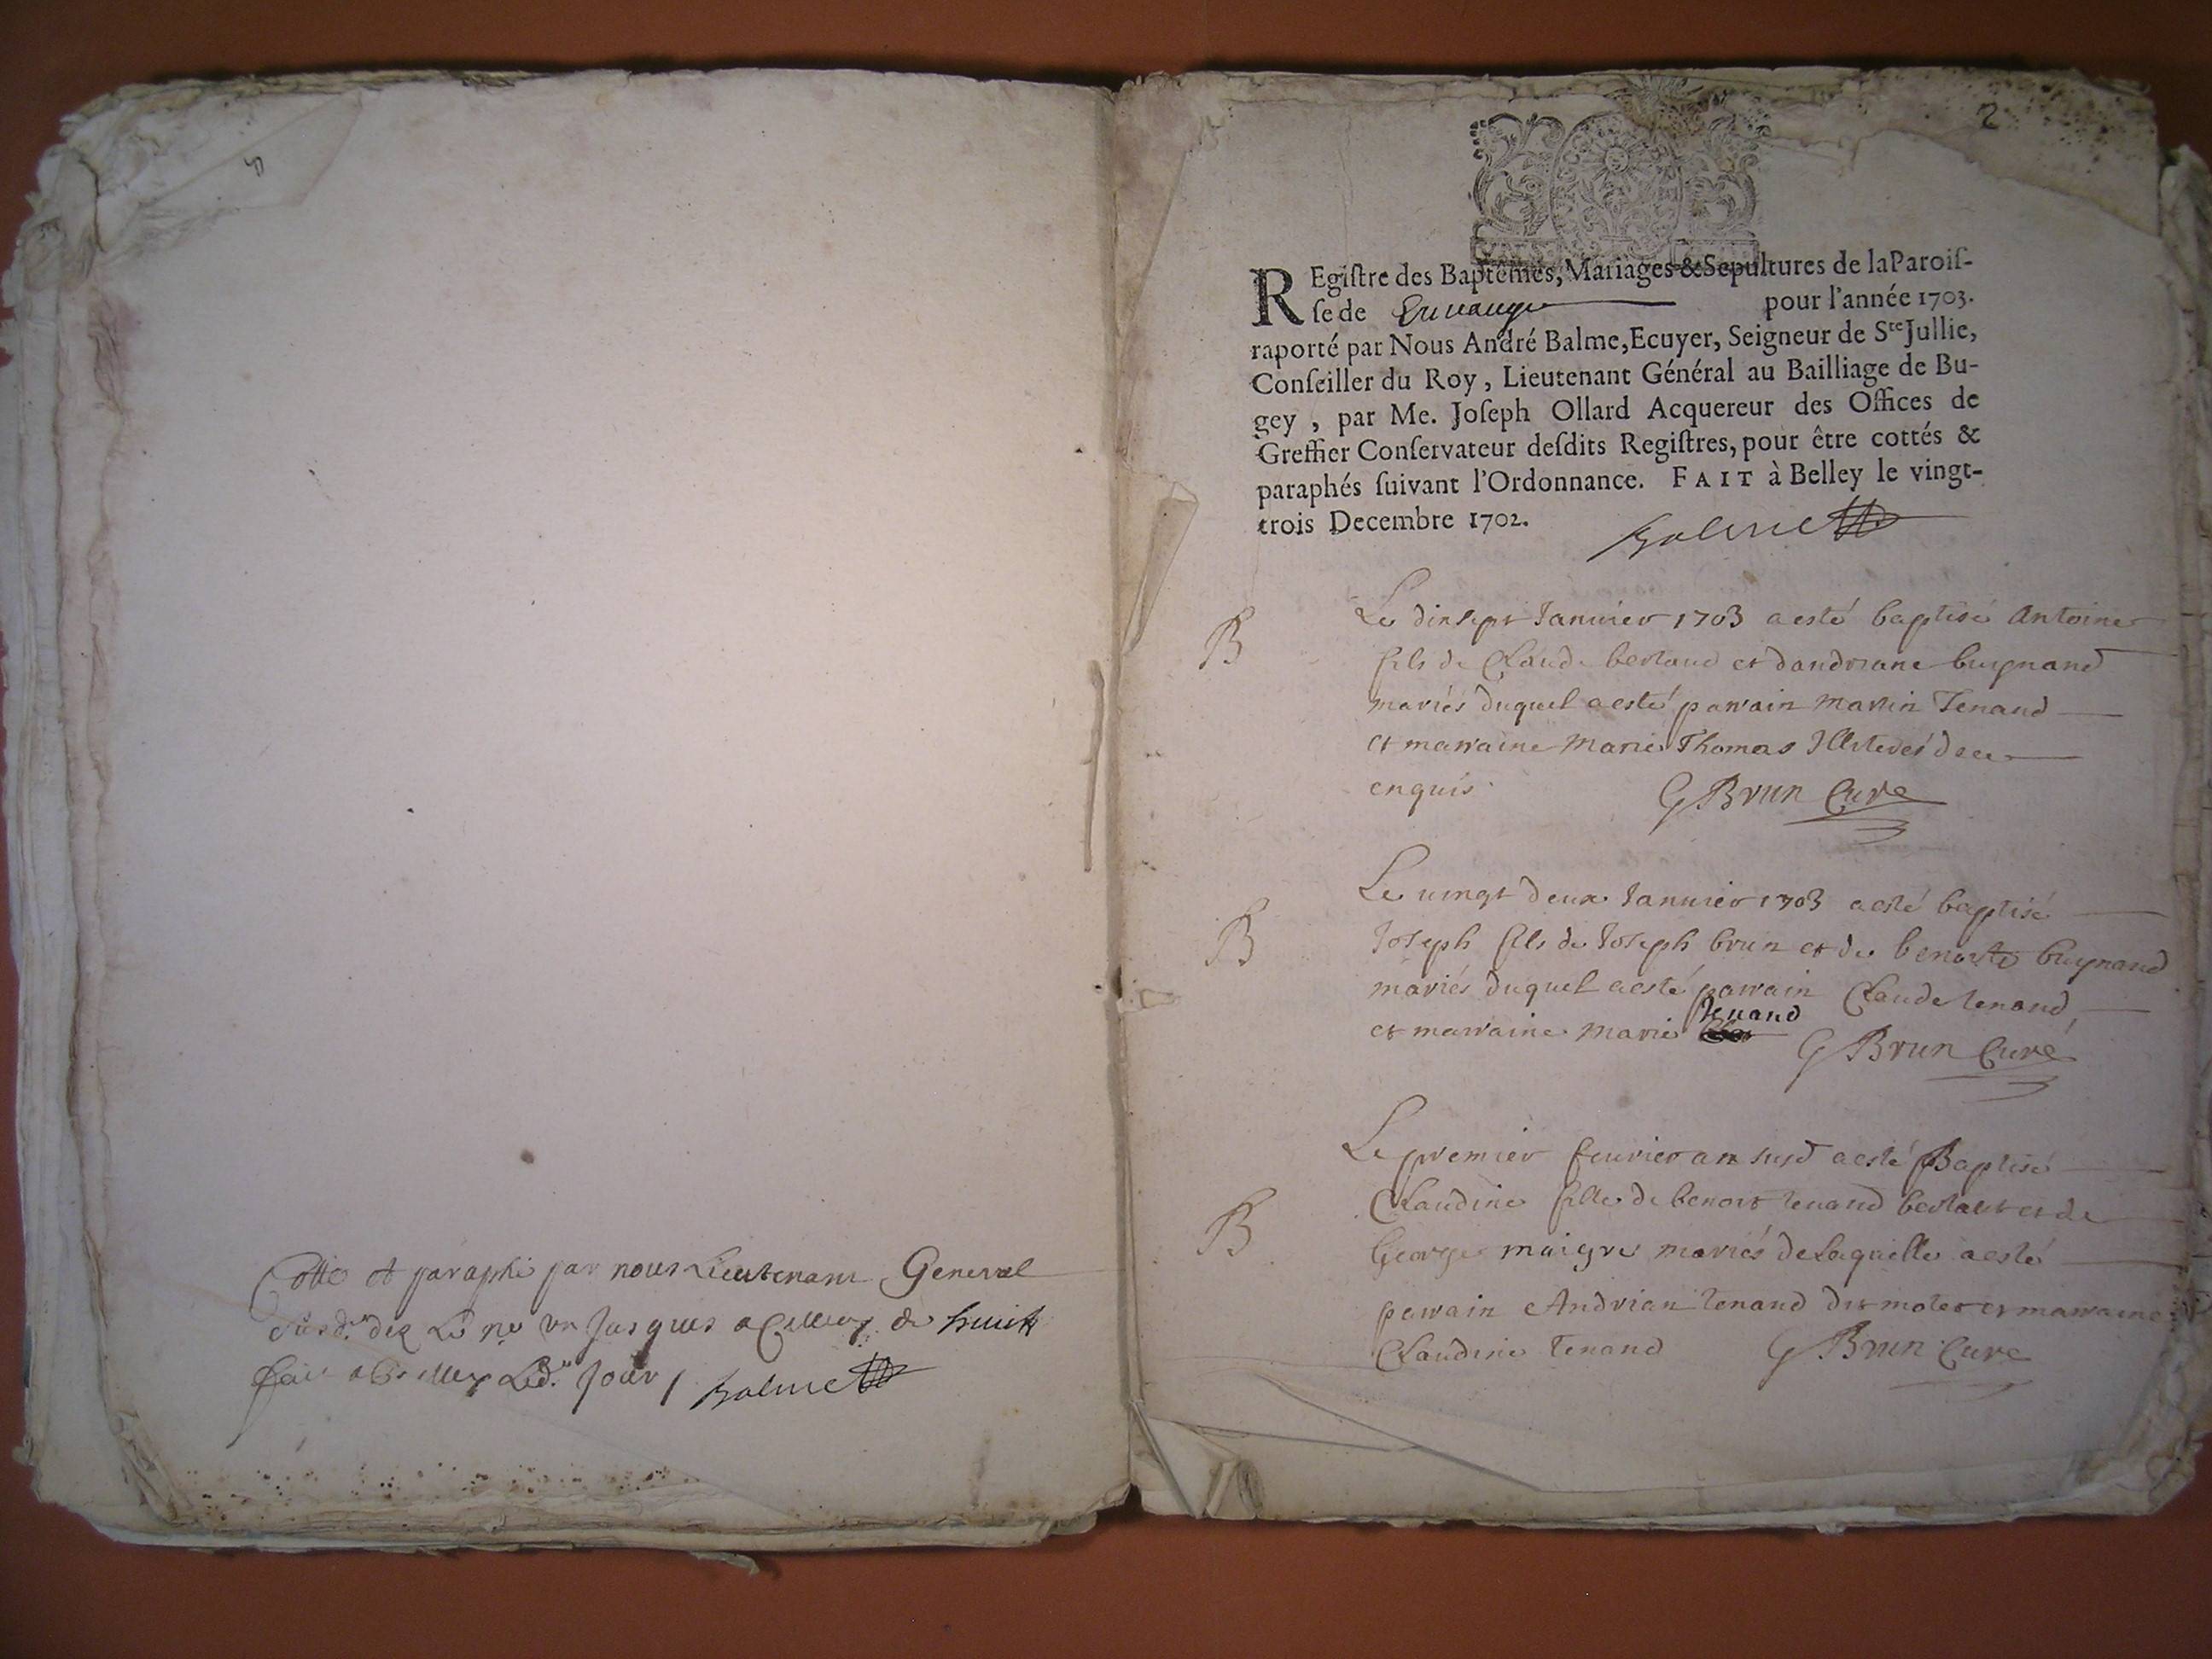 Cotté et paraphé par nous Lieutenant General
susd. dez Le no un Jusques a Celluy de huict
fait a Belley Led. Jour / Balme
2
REgiſtre des Baptêmes, Mariages & Sepultures de la Paroiſ-
ſe de pour l'année 1703.
raporté par Nous André Balme, Ecuyer, Seigneur de Ste Jullie,
Conſeiller du Roy, Lieutenant Général au Bailliage de Bu-
gey, par Me. Joſeph Ollard Acquereur des Offices de
Greffier Conſervateur deſdits Regiſtres, pour être cottés &
paraphés ſuivant l'Ordonnance. FAIT à Belley le vingt-
trois Decembre 1702.
Balme
B
Le dixsept Januier 1703 a esté baptisé Antoine
fils de Claude bertaud et dandriane buynand
mariés duquel a esté parrain Martin Tenand
et marraine Marie Thomas Illiterés de ce
enquis G Brun Curé
B
Le uingt deux Januier 1703 a esté baptisé
Joseph fils de Joseph brun et de benoite buynand
mariés duquel a esté parrain Claude tenand
et marraine Marie Tenand
G Brun Curé
B
Le premier feurier an susd a esté Baptisé
Claudine fille de benoit tenand et de
George maigre mariés de Laquelle a esté
parrain Andrian tenand dit molet et marraine
Claudine Tenand G Brun Curé